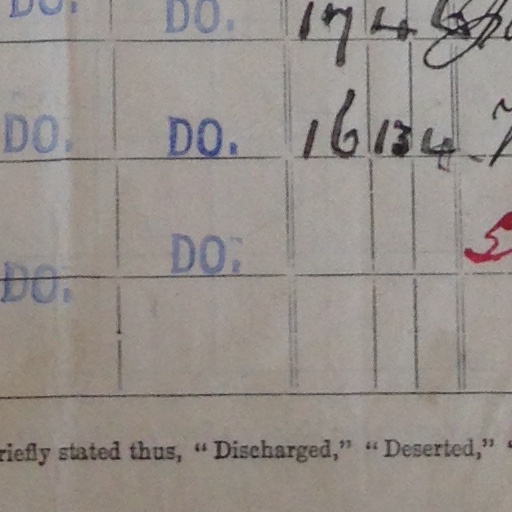 DO. DO. 17 4
DO. DO. 16 13 4
DO. DO. 5
riefly stated thus, “Discharged,” “Deserted,” “